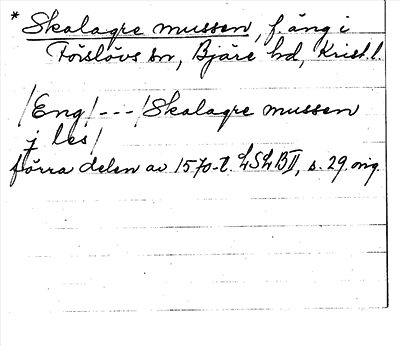 * Skalagre mussen, f. äng i
Förslövs sn, Bjäre hd, Krist. l.
/Eng/---/Skalagre mussen
j les/
förra delen av 1570-t. LSLB II, s. 29. orig.